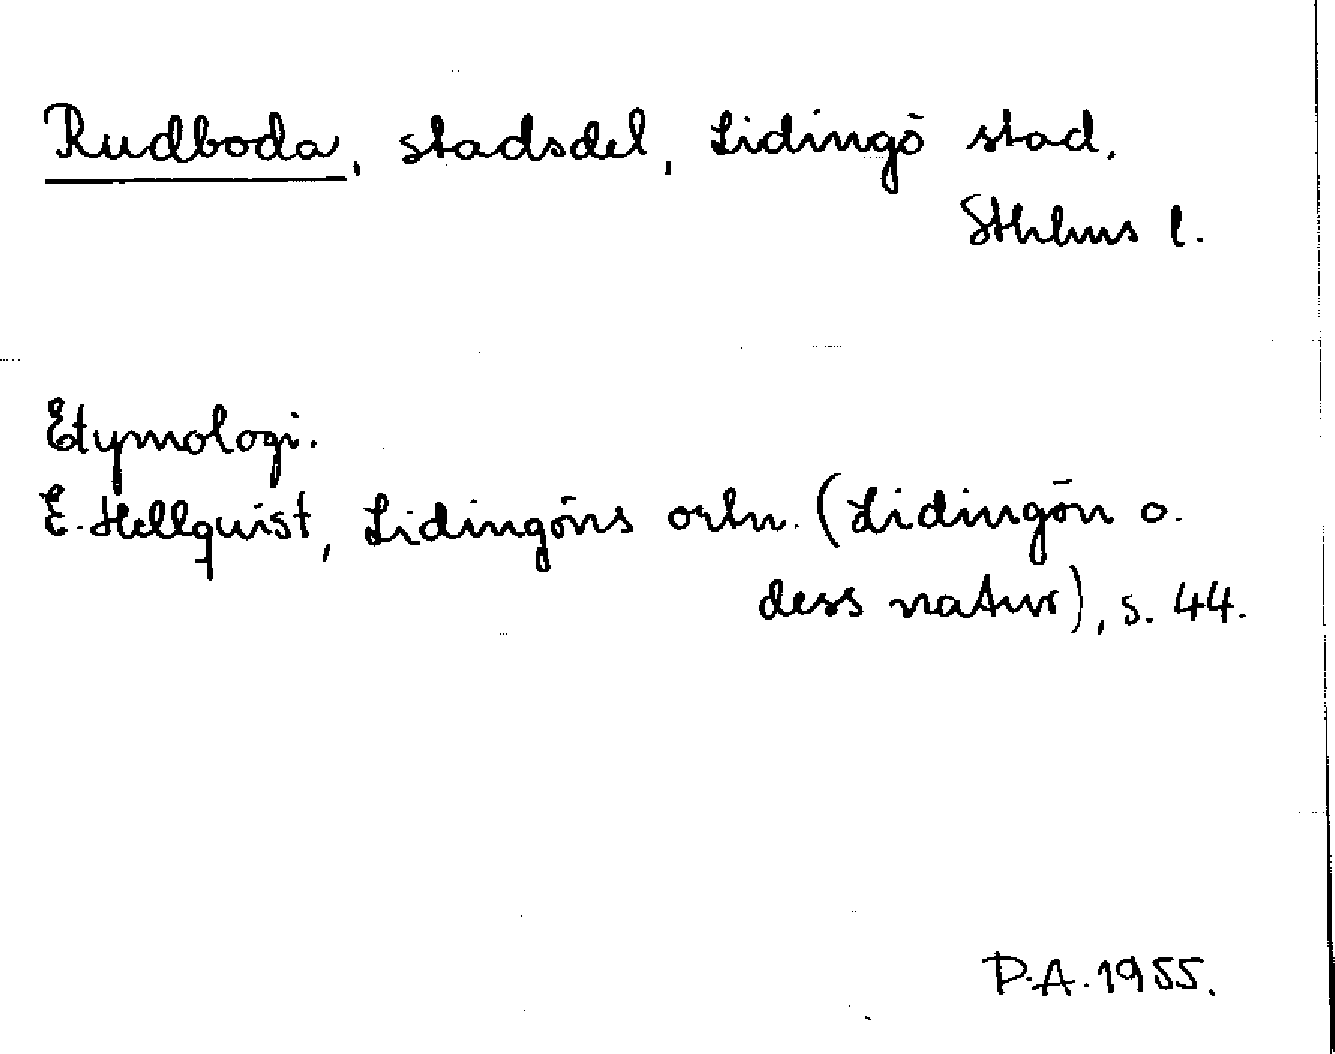 Rudboda, stadsdel, Lidingö stad,
Sthlms l.
Etymologi.
E. Hellquist, Lidingöns ortn. (Lidingön o.
dess natur), s. 44.
P.A. 1955.